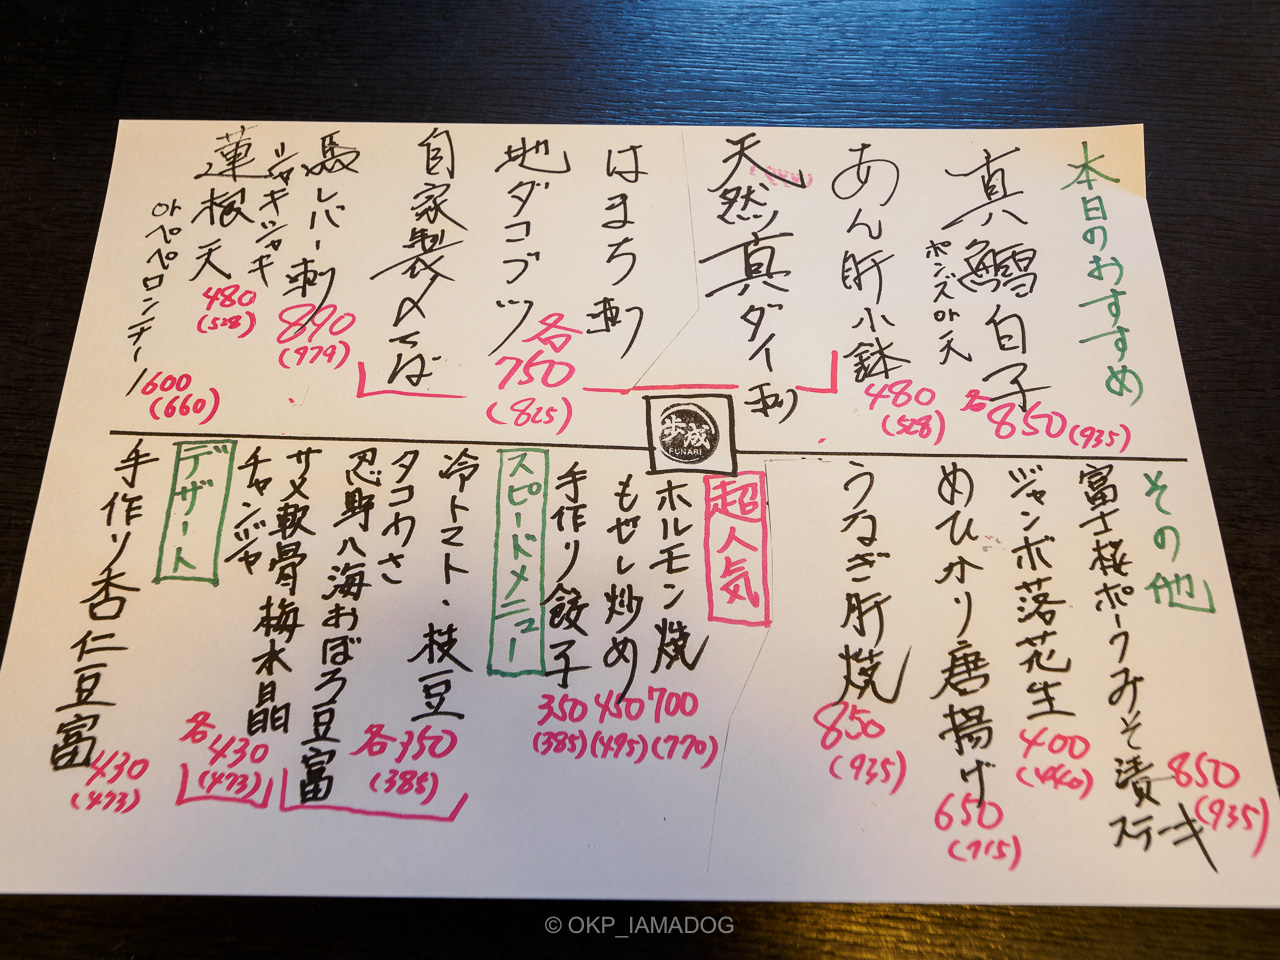 本日のおすすめ
真鱈白子
ポンズor天
各850(935)
あん肝小鉢
480
(528)
天然真ダイ刺
はまち刺
地ダコブツ
自家製〆さば
各
750
(825)
馬レバー刺
890
(979)
蓮根天
シャキシャキ
480
(528)
orペペロンチーノ
600
(660)
歩成
FUNARI
その他
富士桜ポークみそ漬ステーキ
850
(935)
ジャンボ落花生
400
(440)
めひかり唐揚げ
650
(715)
うなぎ肝焼
850
(935)
超人気
ホルモン焼
700
(770)
もやし炒め
450
(495)
手作り餃子
350
(385)
スピードメニュー
冷トマト・枝豆
タコわさ
忍野八海おぼろ豆富
各350
(385)
サメ軟骨梅水晶
チャンジャ
各430
(473)
デザート
手作り杏仁豆富
430
(473)
© OKP_IAMADOG